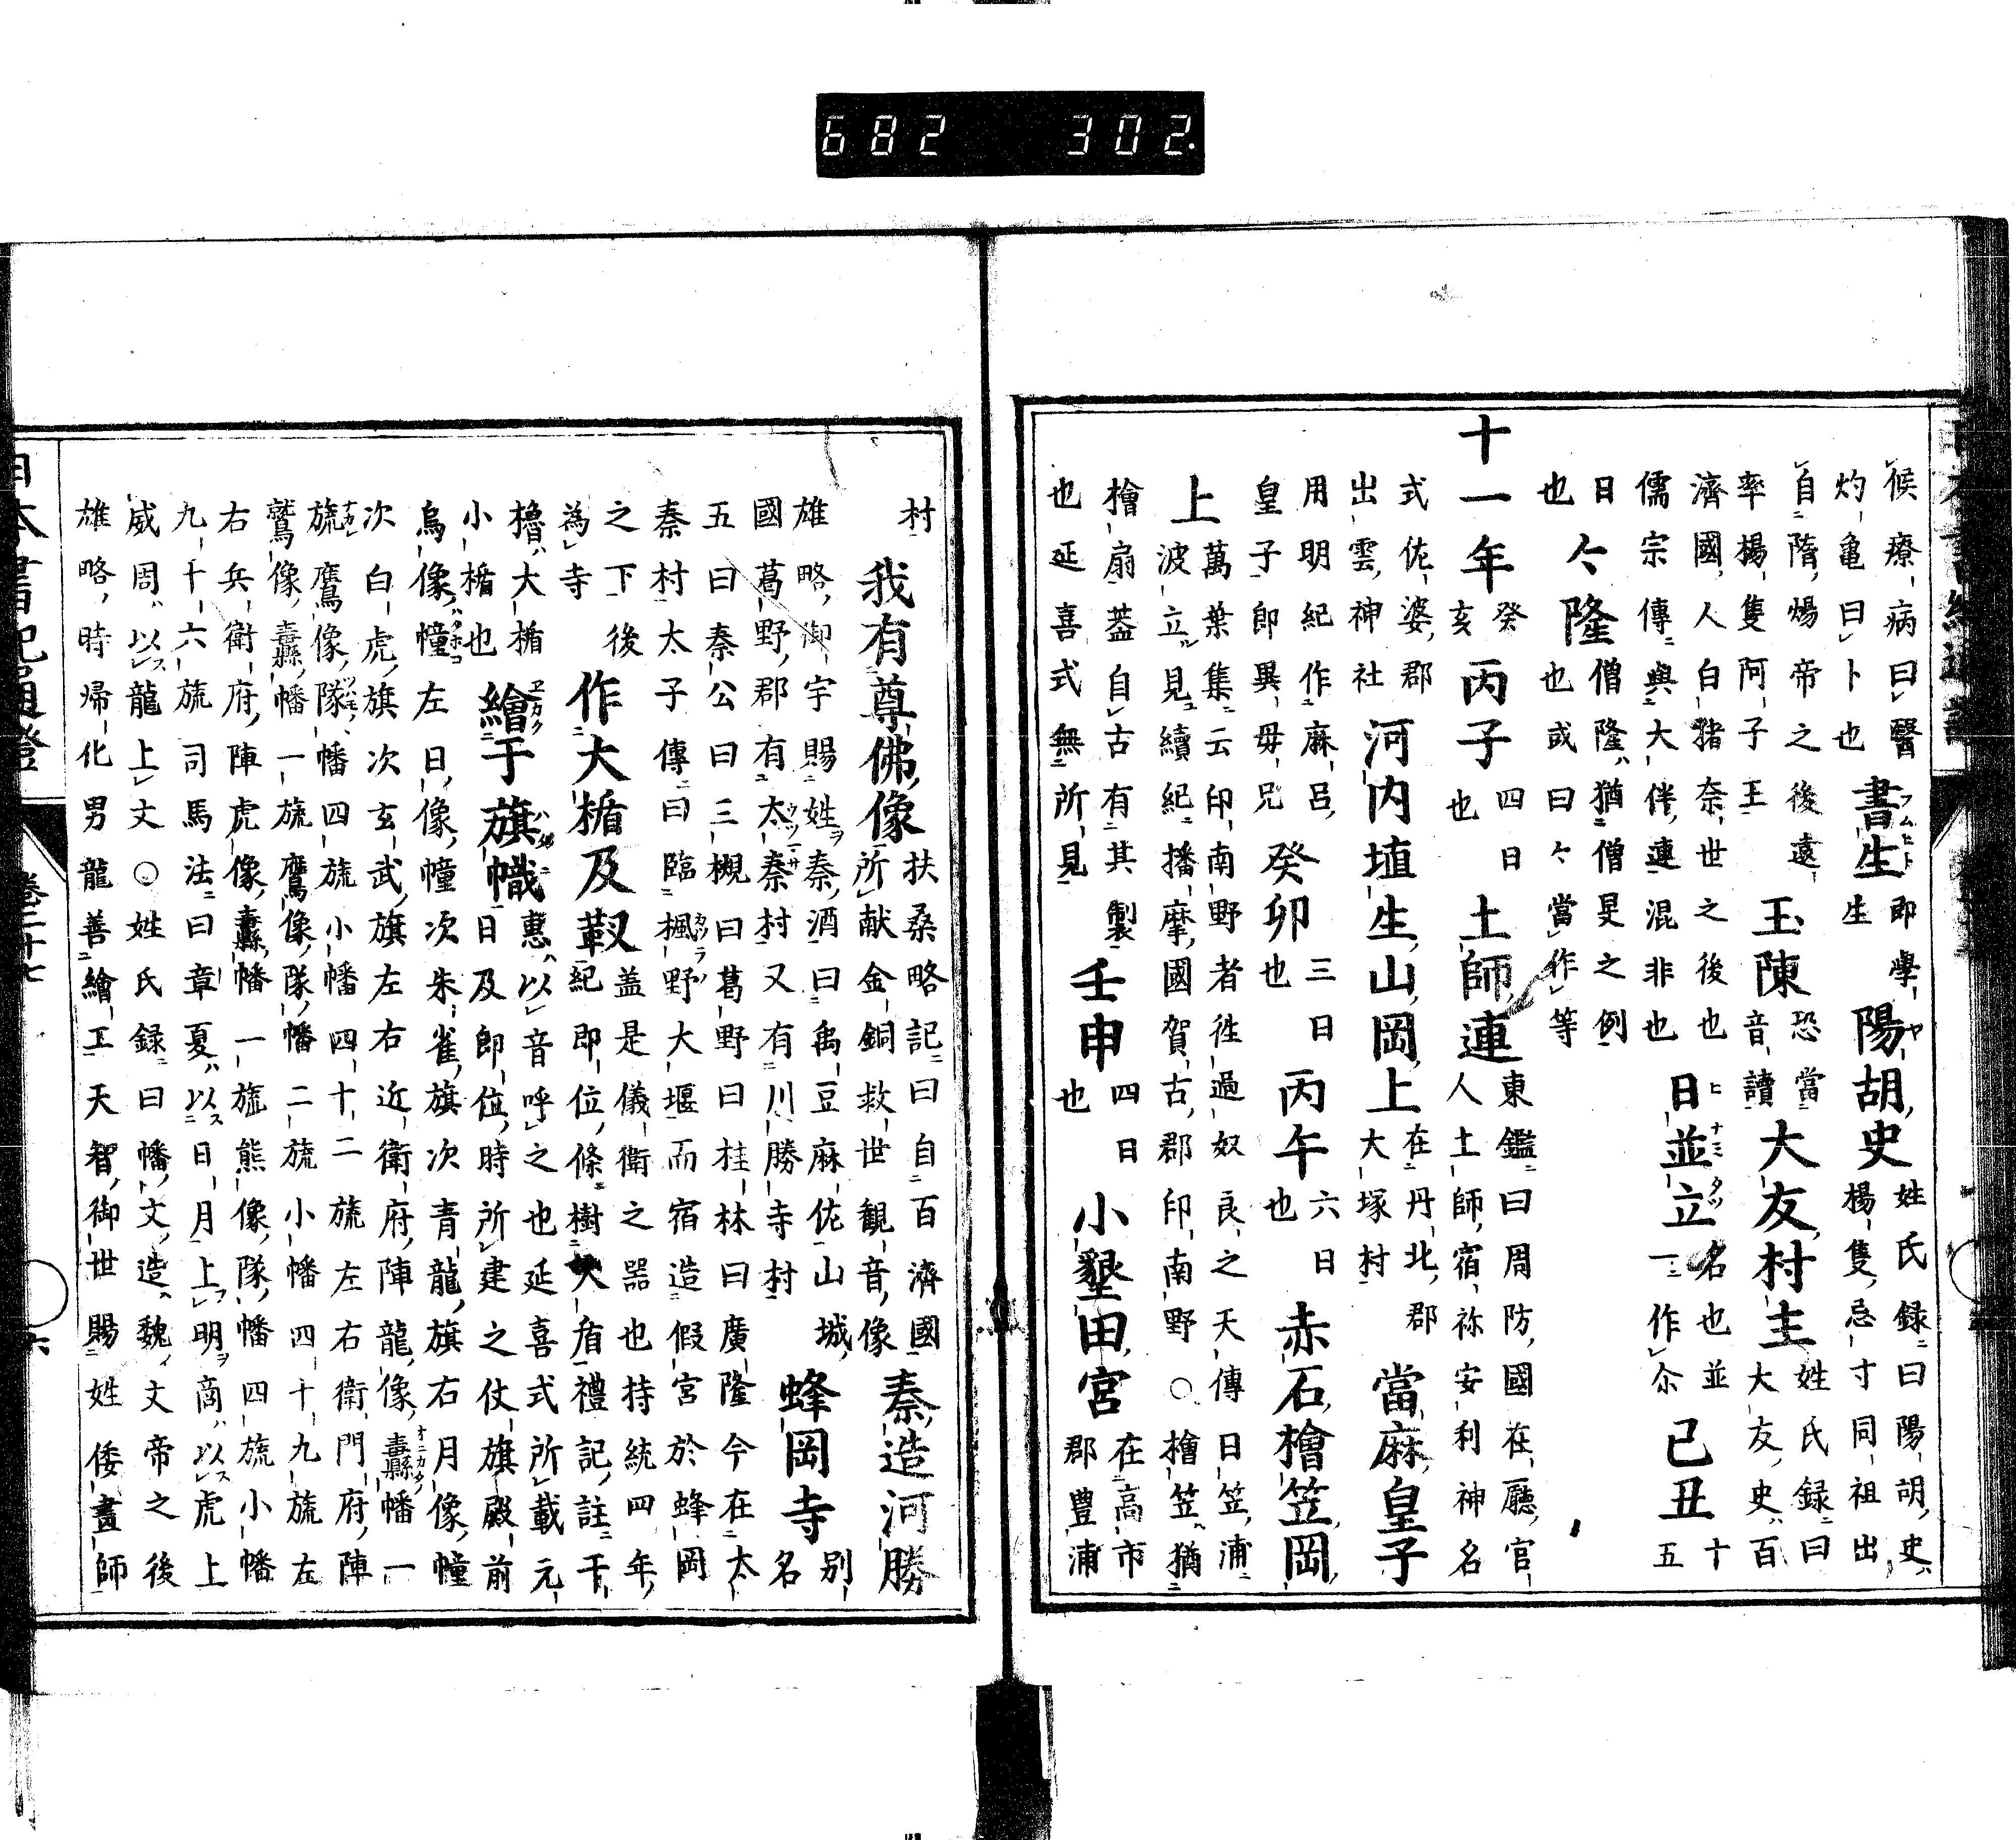 日本書紀通證
候療病曰醫
灼亀曰卜也
書生
即學
生
陽胡史
姓氏録曰陽胡史
楊隻忌寸同祖出
自隋煬帝之後遠
率楊隻阿子王
玉陳
恐當
音讀
大友村主
姓氏録曰
大友史百
濟國人白猪奈世之後也
儒宗傳與大伴連混非也
日並立
名也並
一作尒
己丑
十
五
日
也
々隆
僧隆猶僧旻之例
也或曰々當作等
十一年
癸
亥
丙子
四日
也
土師連
東鑑曰周防國在廳官
人土師宿祢安利神名
式佐婆郡
出雲神社
河内埴生山岡上
在丹北郡
大塚村
當麻皇子
用明紀作麻呂
皇子即異母兄
癸卯
三日
也
丙午
六日
也
赤石檜笠岡
上
萬葉集云印南野者徃過奴良之天傳日笠浦
波立見續紀播摩國賀古郡印南野○檜笠猶
檜扇葢自古有其製
也延喜式無所見
壬申
四日
也
小墾田宮
在高市
郡豊浦
村
我有尊佛像
扶桑略記曰自百濟國
所献金銅救世観音像
秦造河勝
雄略御宇賜姓秦酒曰禹豆麻佐山城
國葛野郡有太秦村又有川勝寺村
蜂岡寺
別
名
五曰秦公曰三槻曰葛野曰桂林曰廣隆今在太
秦村太子傳曰臨楓野大堰而宿造假宮於蜂岡
之下後
為寺
作大楯及靫
盖是儀衛之器也持統四年
紀即位條樹大盾禮記註干
櫓大楯
小楯也
繪于旗幟
惠以音呼之也延喜式所載元
日及即位時所建之仗旗殿前
烏像幢左日像幢次朱雀旗次青龍旗右月像幢
次白虎旗次玄武旗左右近衛府陣龍像纛幡一
旒鷹像隊幡四旒小幡四十二旒左右衛門府陣
鷲像纛幡一旒鷹像隊幡二旒小幡四十九旒左
右兵衛府陣虎像纛幡一旒熊像隊幡四旒小幡
九十六旒司馬法曰章夏以日月上明商以虎上
威周以龍上文○姓氏録曰幡文造魏文帝之後
雄略時帰化男龍善繪工天智御世賜姓倭畫師
日本書紀通證 卷二十七 六
682 302